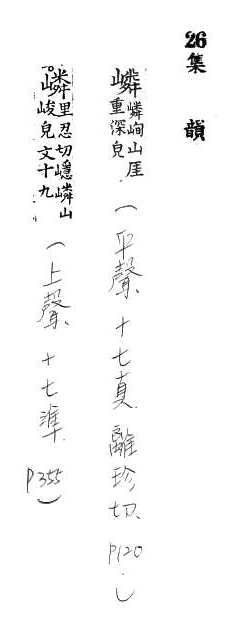 26集 韻
嶙嶙峋山厓重深皃(平聲、十七真 離珍切、P120.)
嶙里忍切嶾嶙山峻皃文十九(上聲、十七準 P355)